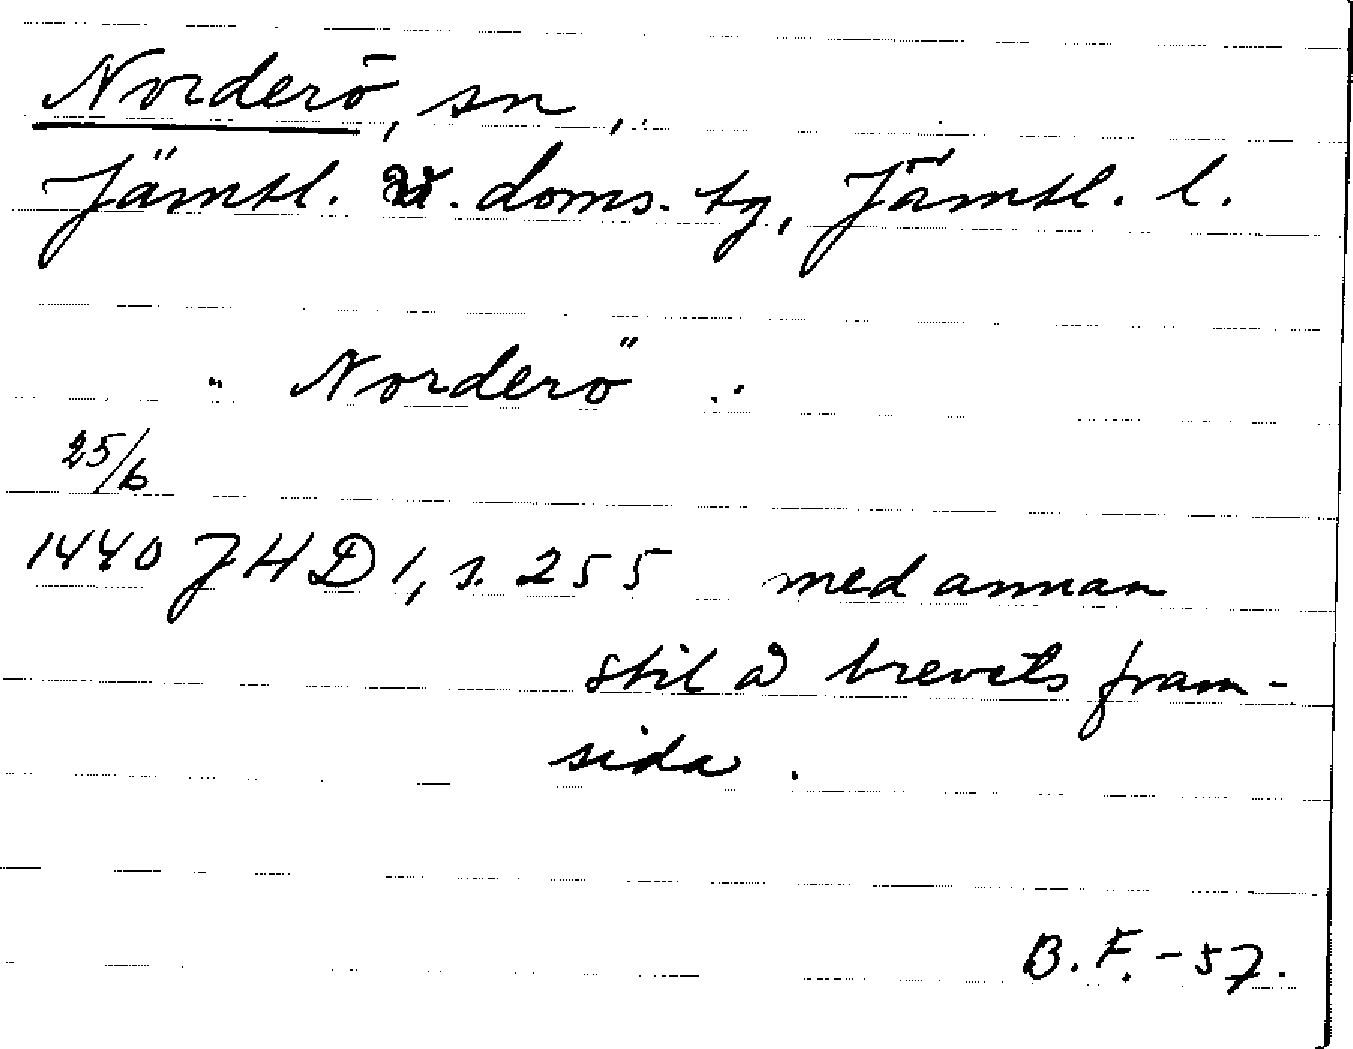 Norderö, sn,
Jämtl. v. doms. tg, Jämtl. l.
" Norderö"
25/6
1440 JHD 1, s. 255 med annan
stil å brevets fram-
sida.
B.F. -57.